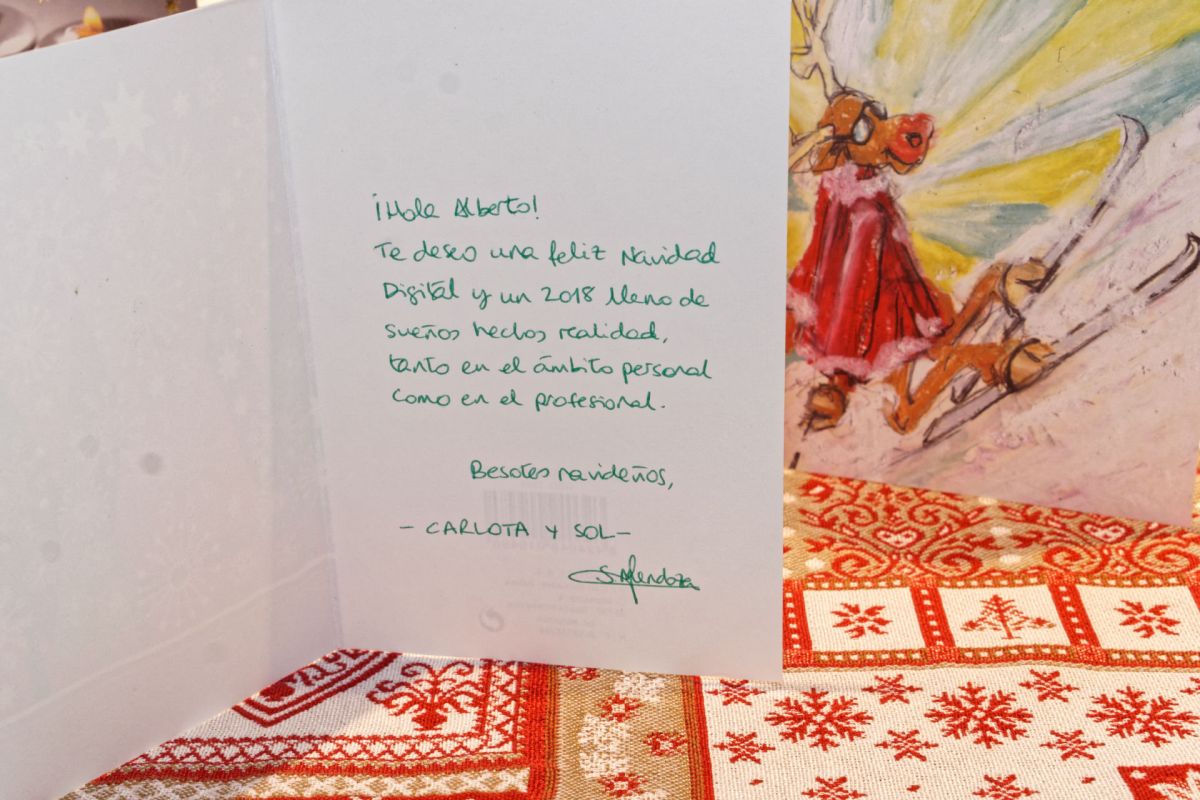 ¡Hola Alberto!
Te deseo una feliz Navidad
Digital y un 2018 lleno de
sueños hechos realidad,
tanto en el ámbito personal
como en el profesional.
Besotes navideños,
- CARLOTA Y SOL -
CSMendoza